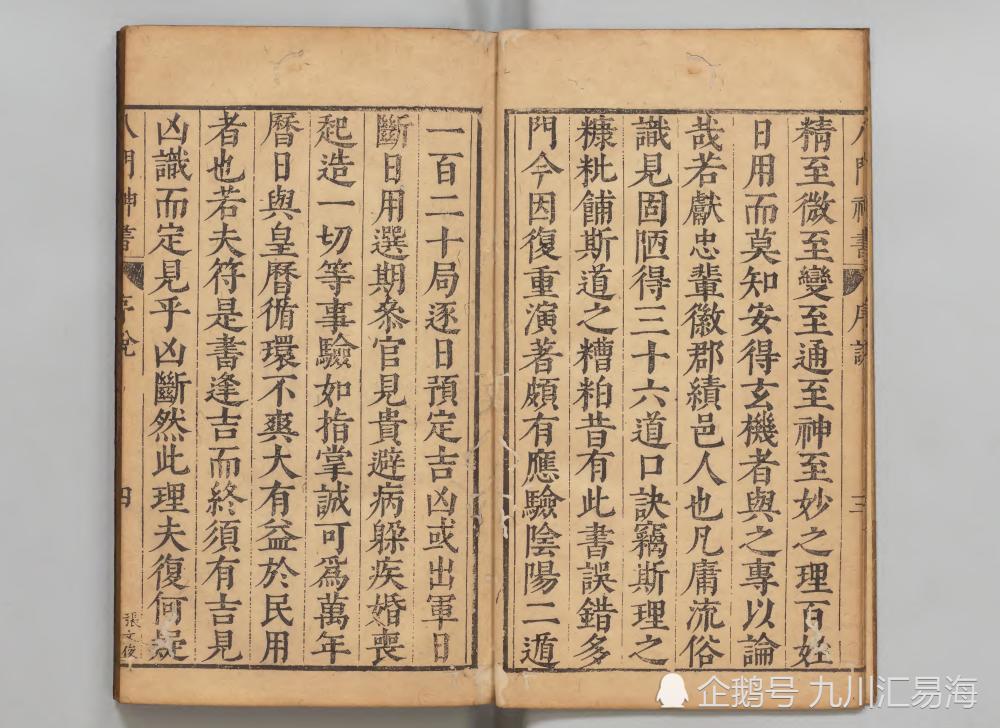 精至微至變至通至神至妙之理百姓
日用而莫知安得玄機者與之專以論
哉若獻忠輩徽郡績邑人也凡庸流俗
識見固陋得三十六道口訣竊斯理之
糠粃餔斯道之糟粕昔有此書誤錯多
門今因復重演著頗有應驗陰陽二遁
一百二十局逐日預定吉凶或出軍日
斷日用選期叅官見貴避病躲疾婚喪
起造一切等事驗如指掌誠可爲萬年
曆日與皇曆循環不爽大有益於民用
者也若夫符是書逢吉而終須有吉見
凶識而定見乎凶斷然此理夫復何疑
八門神書 序說 三
八門神書 序說 四
張文俊
企鹅号 九川汇易海